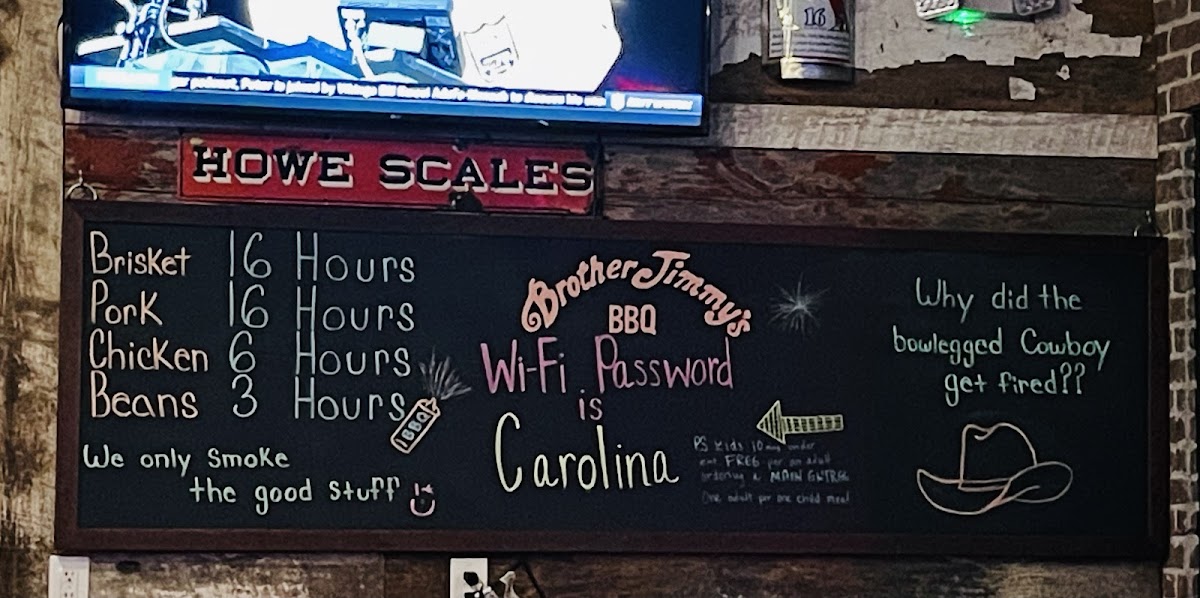 16
podcast, Peter is joined by Vikings to discuss his
HOWE SCALES
Brisket 16 Hours
Pork 16 Hours
Chicken 6 Hours
Beans 3 Hours
BBQ
We only smoke
the good stuff
Brother Jimmy's
BBQ
Wi-Fi Password
is
Carolina
PS Kids 10 under
eat FREE per an adult
ordering a MAIN ENTREE
One adult per one child meal
Why did the
bowlegged Cowboy
get fired??